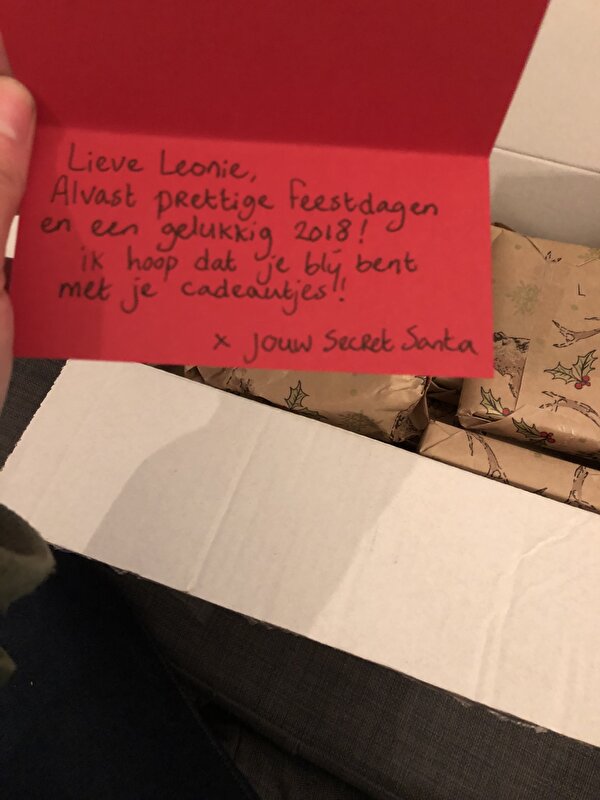 Lieve Leonie,
Alvast prettige feestdagen
en een gelukkig 2018!
ik hoop dat je blij bent
met je cadeautjes!
x jouw Secret Santa